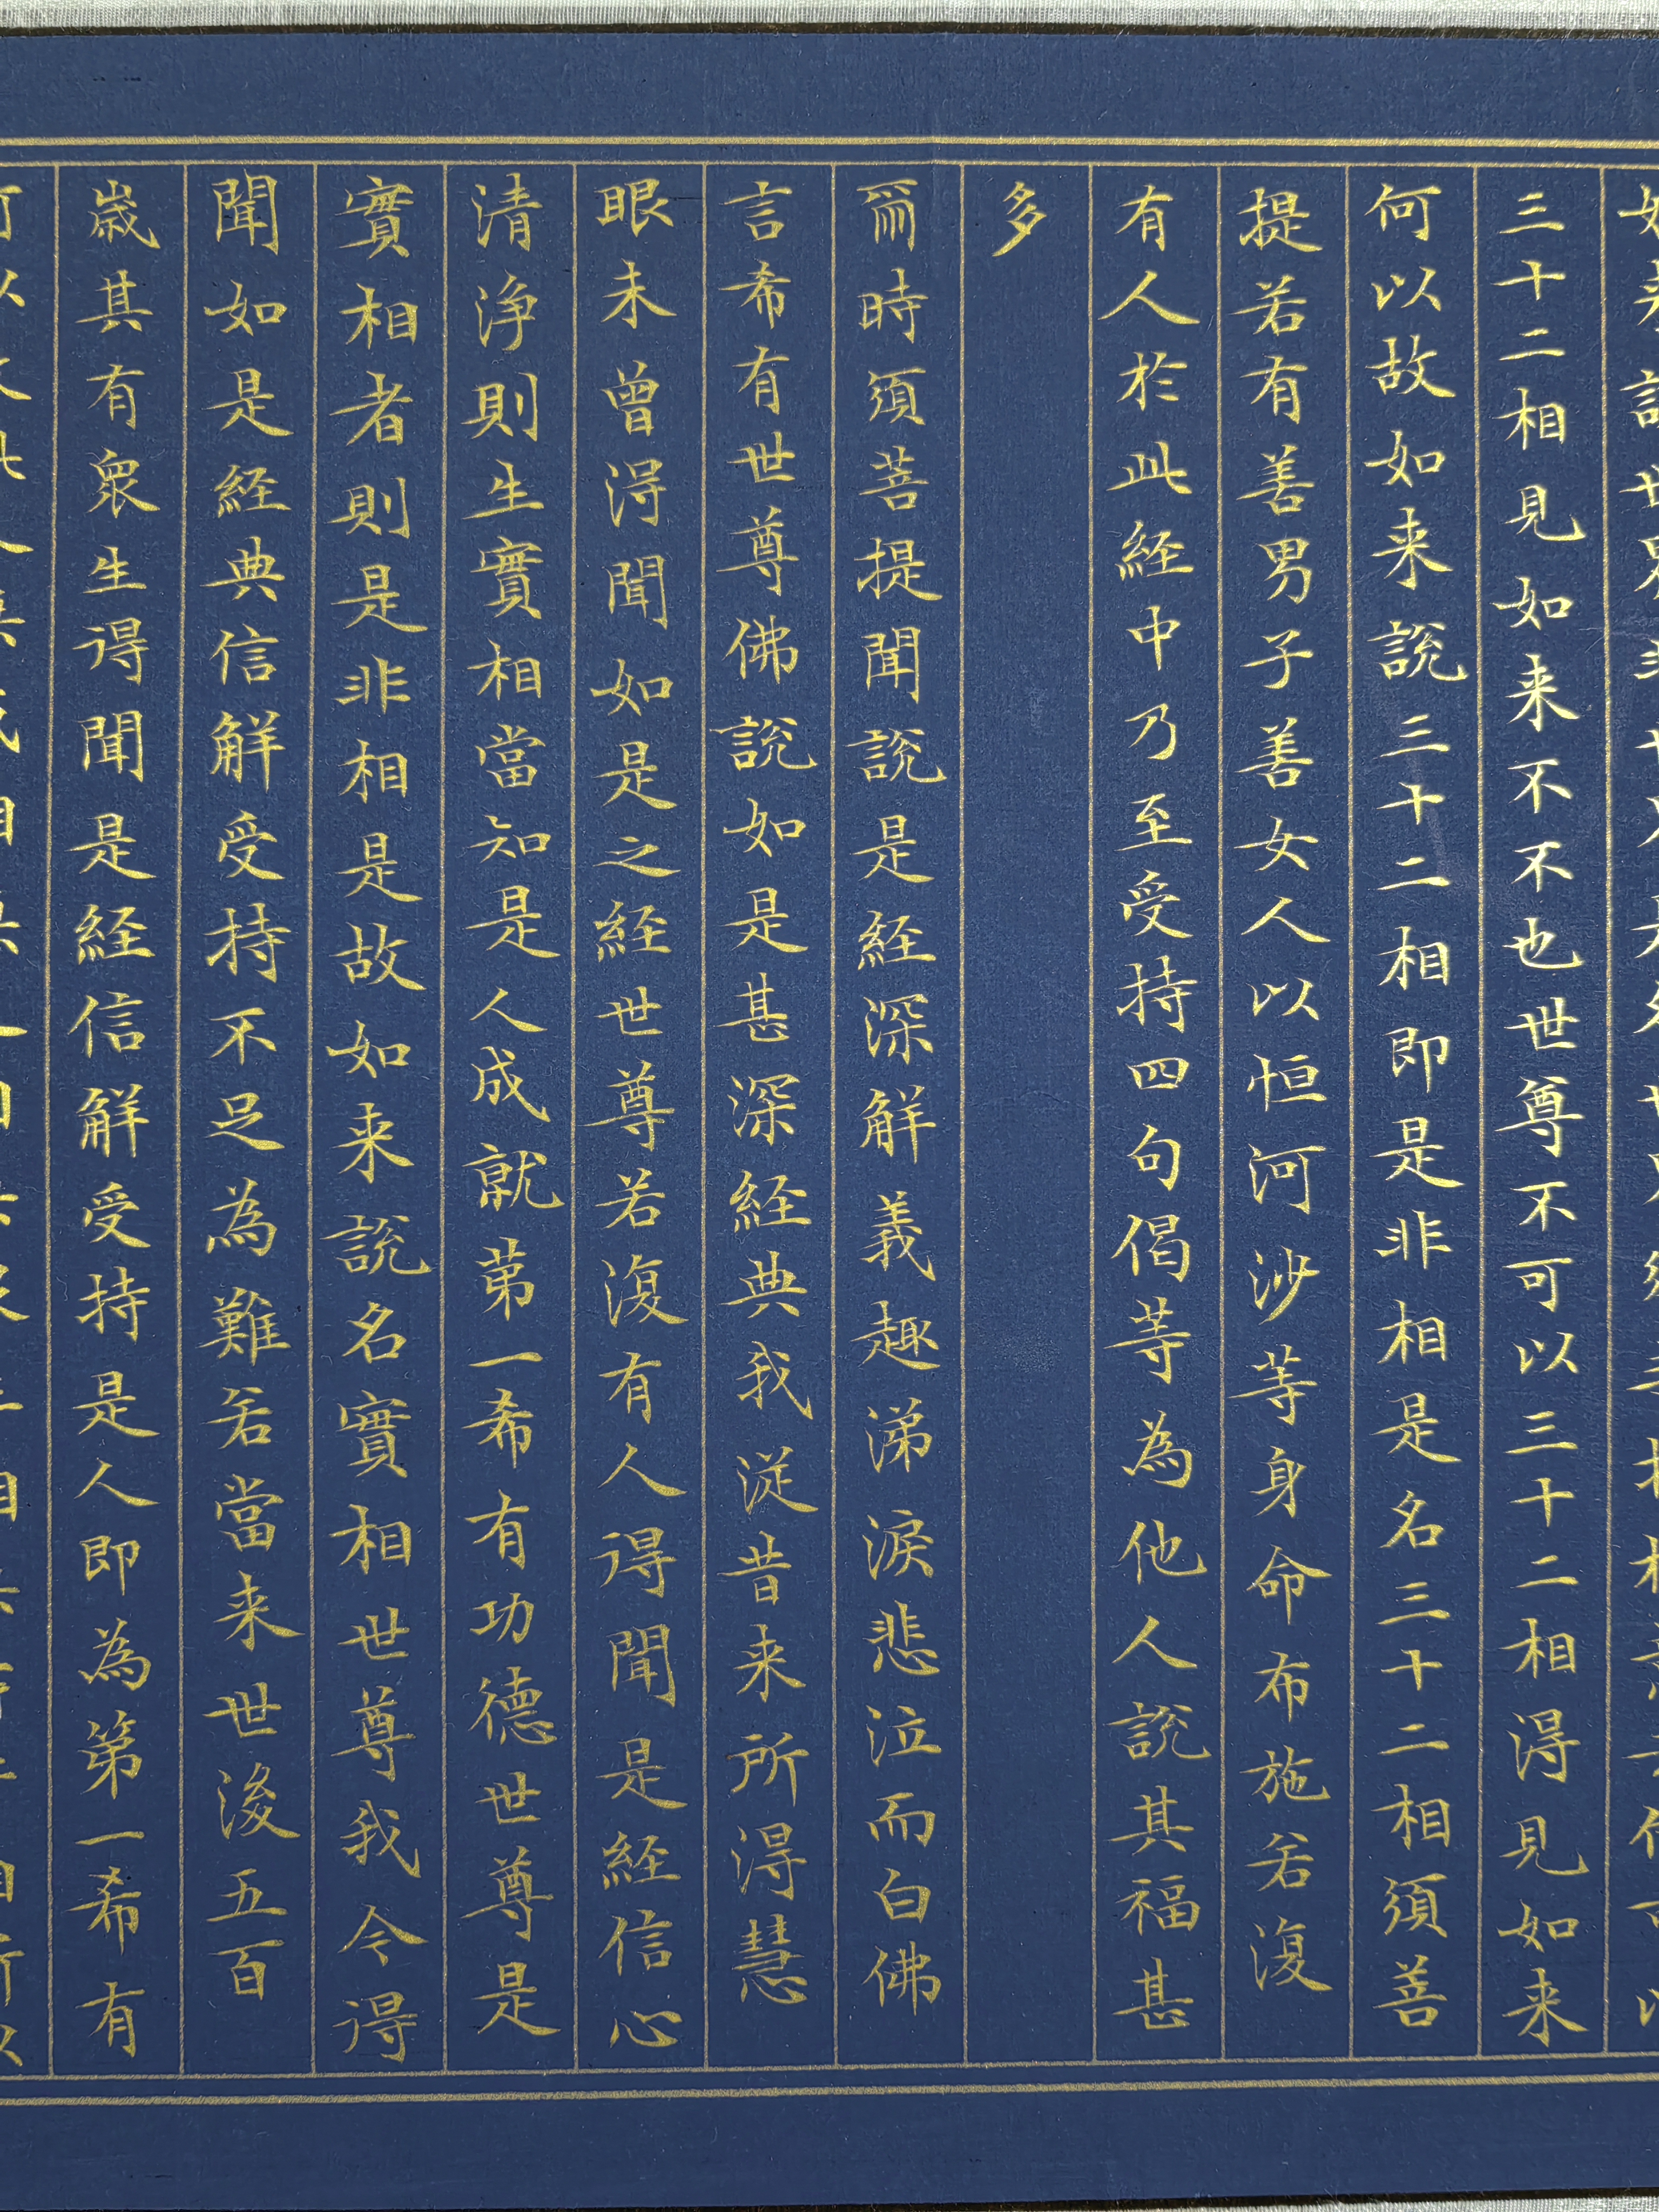 三十二相見如来不不也世尊不可以三十二相得見如来
何以故如来說三十二相即是非相是名三十二相須菩
提若有善男子善女人以恒河沙等身命布施若復
有人於此経中乃至受持四句偈等為他人說其福甚
多
爾時須菩提聞說是経深解義趣涕淚悲泣而白佛
言希有世尊佛說如是甚深経典我従昔来所得慧
眼未曾得聞如是之経世尊若復有人得聞是経信心
清浄則生實相當知是人成就第一希有功德世尊是
實相者則是非相是故如来說名實相世尊我今得
聞如是経典信解受持不足為難若當来世後五百
歲其有衆生得聞是経信解受持是人即為第一希有